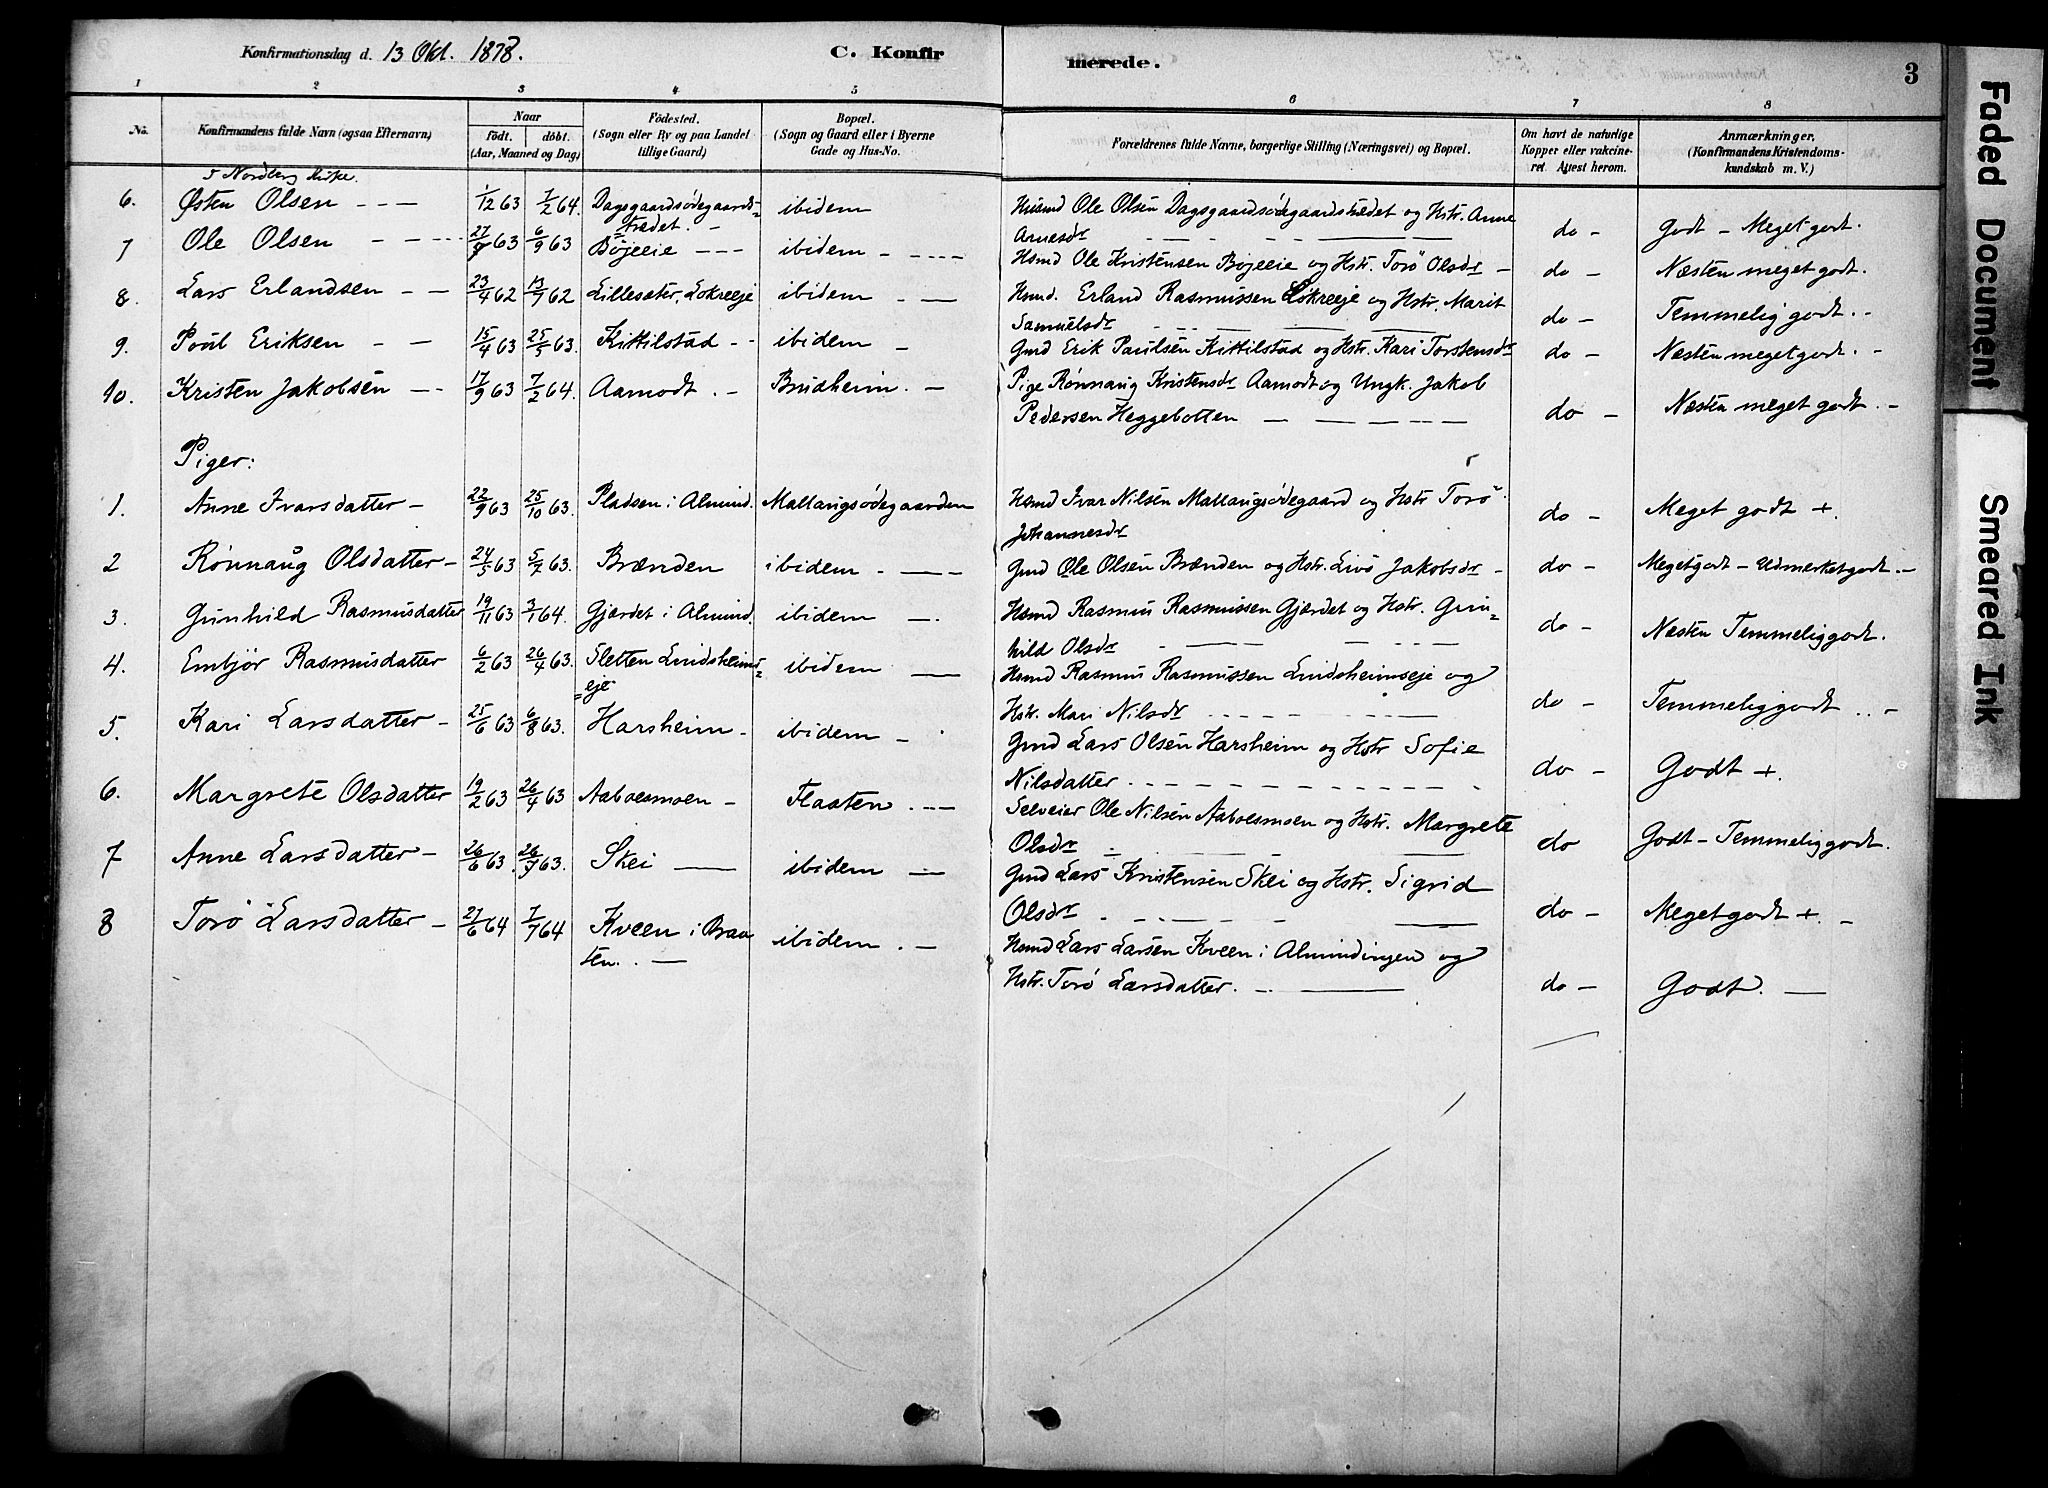 Konfirmationsdag d. 13 Okt. 1878.
C. Konfir
merede.
3
1 2 3 4 5 6 7 8
No.
Konfirmandens fulde Navn (ogsaa Efternavn)
Naar
födt. döbt.
(Aar, Maaned og Dag)
Födested.
(Sogn eller By og paa Landet
tillige Gaard)
Bopæl.
(Sogn og Gaard eller i Byerne
Gade og Hus-No.
Forældrenes fulde Navne, borgerlige Stilling (Næringsvei) og Bopæl.
Om havt de naturlige
Kopper eller vakcine-
ret. Attest herom.
Anmærkninger,
(Konfirmandens Kristendoms-
kundskab m. V.)
Nordberg Kirke.
6. Østen Olsen - - - 1/12 63 7/2 64. Dagsgaardsødegaards- ibidem Husmd Ole Olsen Dagsgaardsødegaardstrædet og Hstr. Anne
=trædet. - Arnesdr do - Godt - Meget godt.
7 Ole Olsen 27/7 63 6/9 63 Bøjeeie - - - ibidem Hsmd Ole Kristensen Bøjeeie og Hstr. Torø Olsdr - do - Næsten meget godt.
8. Lars Erlandsen 23/4 62 13/7 62 Lillesæter, Løkreeje ibidem Hsmd. Erland Rasmussen Løkreeje og Hstr. Marit
Samuelsdr do - Temmelig godt. -
9. Poul Eriksen 15/4 63 25/5 63. Kittilstad - - ibidem Gmd Erik Paulsen Kittilstad og Hstr. Kari Torstensdr do - Næsten meget godt. -
10. Kristen Jakobsen 17/9 63 7/2 64. Aamodt. - Brudheim. - Pige Rønnaug Kristensdr Aamodt og Ungk. Jakob
Pedersen Heggebotten do - Næsten meget godt. -
Piger:
1. Anne Ivarsdatter - 22/9 63 25/10 63. Pladsen i Almind. Mallangsødegaarden Hsmd Ivar Nilsen Mallangsødegaard og Hstr Torø
Johannesdr do - Meget godt +.
2 Rønnaug Olsdatter - 24/5 63 5/7 63. Brænden ibidem Gmd Ole Olsen Brænden og Hstr. Livø Jakobsdr - do - Megetgodt - Udmerketgodt. -
3. Gunhild Rasmusdatter 19/11 63 3/1 64. Gjærdet i Almind. ibidem Hsmd Rasmus Rasmussen Gjærdet og Hstr. Gun=
hild Olsdr do - Næsten Temmeliggodt.
4. Embjør Rasmusdatter 6/2 63 26/4 63. Sletten Lindsheims= ibidem Hsmd Rasmus Rasmussen Lindsheimseje og
=eje Hstr. Mari Nilsdr do - Temmeliggodt . . -
5. Kari Larsdatter - 25/6 63 6/8 63. Harsheim - ibidem - Gmd Lars Olsen Harsheim og Hstr Sofie
Nilsdatter do - Godt +.
6. Margrete Olsdatter 19/2 63 26/4 63 Aaboesmoen - Flaaten Selveier Ole Nilsen Aaboesmoen og Hstr. Margrete
Olsdr do Godt - Temmeliggodt.
7 Anne Larsdatter - 26/6 63. 26/7 63. Skei ibidem Gmd Lars Kristensen Skei og Hstr. Sigrid
Olsdr do - Megetgodt +. -
8 Torø Larsdatter - 21/6 64 7/7 64 Kveen i Braa ibidem. - Hsmd Lars Larsen Kveen i Almindingen og
ten. Hstr. Torø Larsdatter. do - Godt.
Faded Document
Smeared Ink